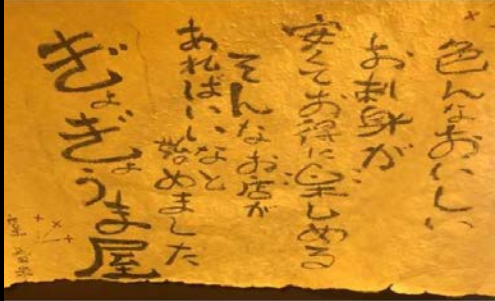 色んなおいしい
お刺身が
安くてお得に楽しめる
そんなお店が
あればいいなと
始めました
ぎょぎょうま屋